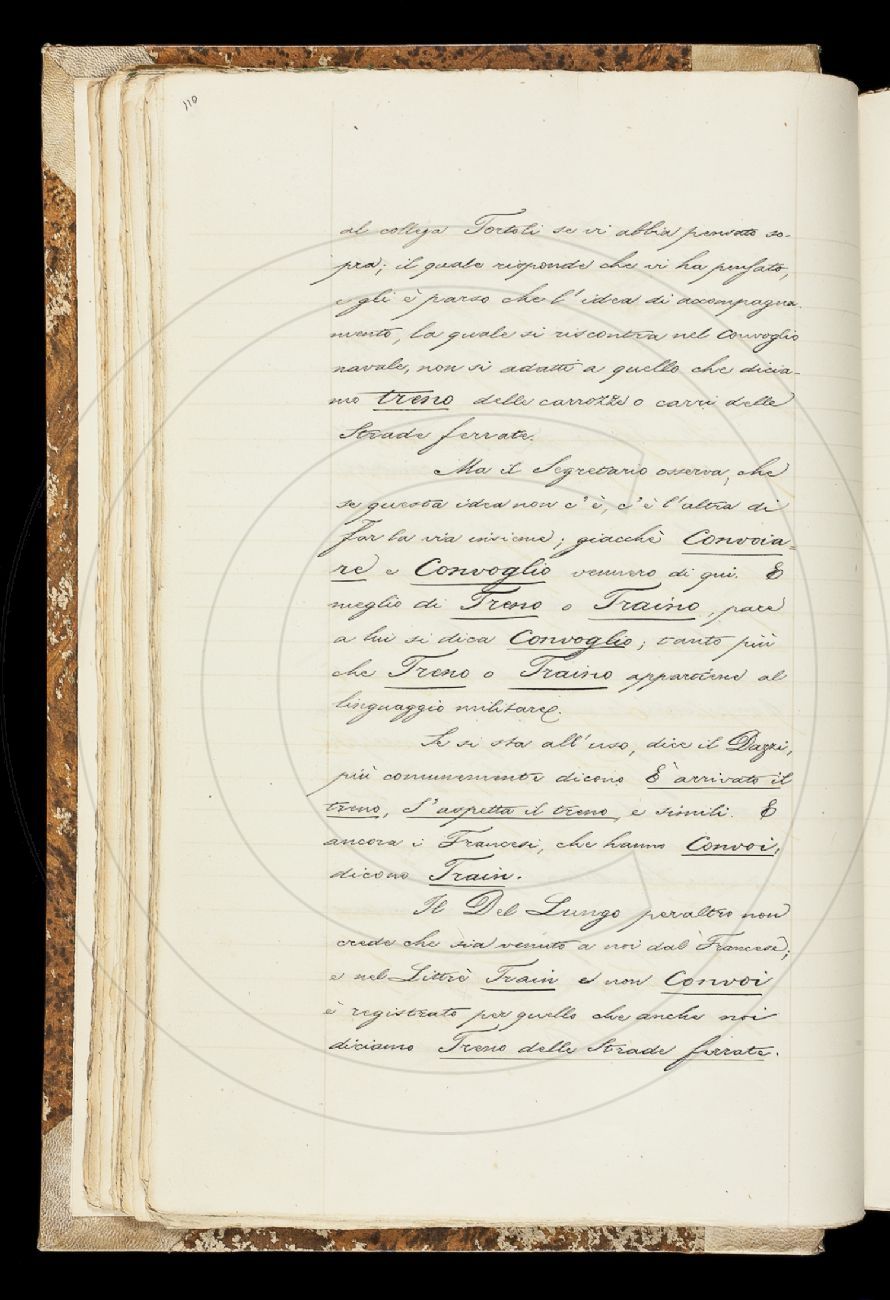 110
al collega Tortoli se vi abbia pensato so-
pra; il quale risponde che vi ha pensato,
e gli è parso che l'idea di accompagna-
mento, la quale si riscontra nel Convoglio
navale, non si adatti a quello che dicia-
mo treno delle carrozze o carri delle
Strade ferrate.
Ma il Segretario osserva, che
se questa idea non c'è, c'è l'altra di
far la via insieme; giacchè Convoia-
re e Convoglio vennero di qui. E
meglio di Treno o Traino, pare
a lui si dica Convoglio; tanto più
che Treno o Traino appartiene al
linguaggio militare.
Se si sta all'uso, dice il Dazzi,
più comunemente dicono È arrivato il
treno, S'aspetta il treno, e simili. E
ancora i Francesi, che hanno Convoi,
dicono Train.
Il Del Lungo peraltro non
crede che sia venuto a noi dal Francese;
e nel Littrè Train e non Convoi
è registrato per quello che anche noi
diciamo Treno delle Strade ferrate.